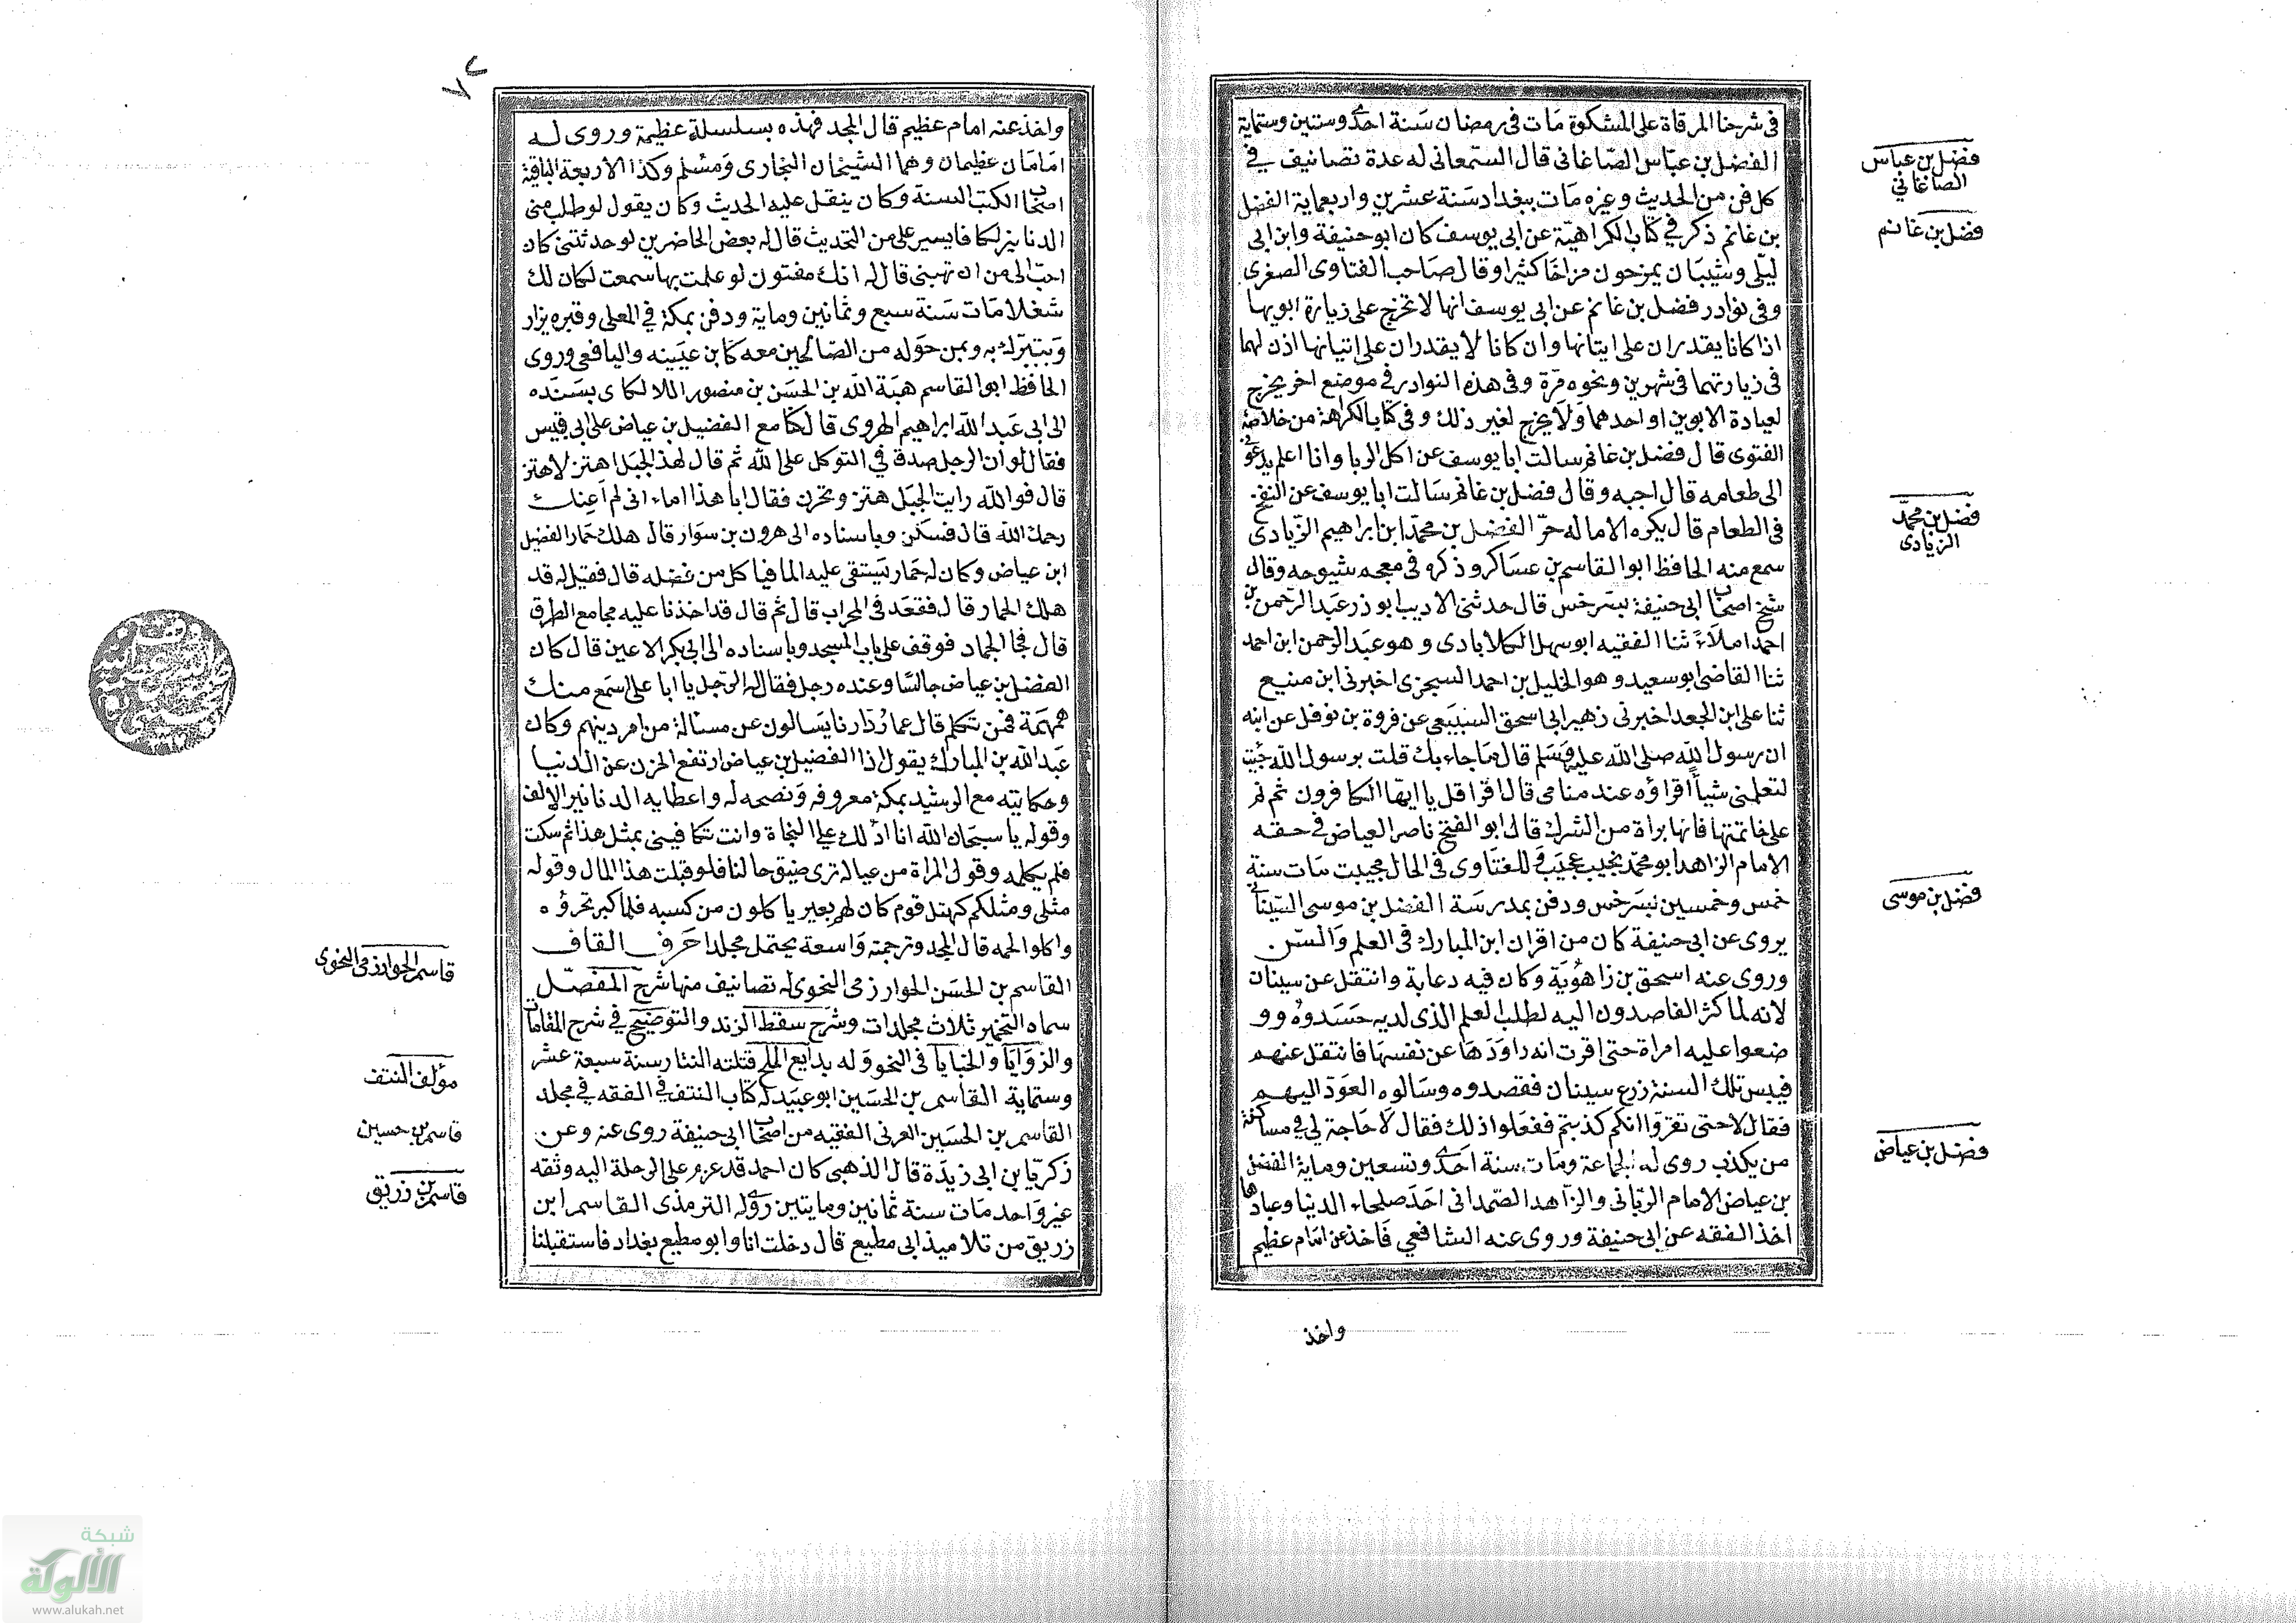 في شرحنا المرقاة على المشكوة مات في رمضان سنة احدى وستين وستماية
الفضل بن عباس الصاغاني قال السمعاني له عدة تصانيف في
كل فن من الحديث وغيره مات ببغداد سنة عشرين واربعماية الفضل
بن غانم ذكر في كتاب الكراهية عن ابي يوسف كان ابو حنيفة وابن ابي
ليلى وشيبان يمزحون مزاحا كثيرا وقال صاحب الفتاوى الصغرى
وفي نوادر فضل بن غانم عن ابي يوسف انها لا تخرج على زيارة ابويها
اذا كانا يقدران على ايتانها وان كانا لا يقدران على اتيانها اذن لهما
في زيارتهما في شهرين ونحوه مرة وفي هذه النوادر في موضع اخر يخرج
لعيادة الابوين او احدهما ولا يخرج لغير ذلك وفي كتاب الكراهة من خلاصة
الفتوى قال فضل بن غانم سالت ابا يوسف عن اكل الربا وانا اعلم يدعوني
الى طعامه قال اجبه وقال فضل بن غانم سالت ابا يوسف عن النفخ
في الطعام قال يكره الا ماله حر الفضل بن محمد ابن ابراهيم الزيادي
سمع منه الحافظ ابو القاسم بن عساكر وذكره في معجم شيوخه وقال
شيخ اصحاب ابي حنيفة بسرخس قال حدثني الاديب ابو ذر عبد الرحمن بن
احمد املاء ثنا الفقيه ابو سهل الكلابادي وهو عبد الرحمن ابن احمد
ثنا القاضي ابو سعيد وهو الخليل بن احمد السجزي اخبرني ابن منيع
ثنا علي ابن الجعد اخبرني زهير ابي اسحق السبيعي عن فروة بن نوفل عن ابيه
ان رسول الله صلى الله عليه وسلم قال ما جاء بك قلت يرسول الله جيت
لتعلمني شيأ اقراؤه عند منامي قال اقرا قل يا ايها الكافرون ثم نم
على خاتمتها فانها براة من الشرك قال ابو الفتح ناصر العياض في حقه
الامام الزاهد ابو محمد نجيب عجيب في للفتاوى في الحال مجيب مات سنة
خمس وخمسين بسرخس ودفن بمدرسة الفضل بن موسى السيناني
يروى عن ابي حنيفة كان من اقران ابن المبارك في العلم والسن
وروى عنه اسحق بن راهويه وكان فيه دعابة وانتقل عن سينان
لانه لما كثر القاصدون اليه لطلب العلم الذي لديه حسدوه وو
ضعوا عليه امراة حتى اقرت انه راودها عن نفسها فانتقل عنهم
فيبس تلك السنة زرع سينان فقصدوه وسالوه العود اليهم
فقال لا حتى تقروا انكم كذبتم ففعلوا ذلك فقال لا حاجة لي في مساكنة
من يكذب روى له الجماعة ومات سنة احدى وتسعين وماية الفضل
بن عياض الامام الرباني والزاهد الصمداني احد صلحاء الدنيا وعبادها
اخذ الفقه عن ابي حنيفة وروى عنه الشافعي فاخذ عن امام عظيم
واخذ
فضل بن عباس
الصاغاني
فضل بن غانم
فضل بن محمد
الزيادي
فضل بن موسى
فضل بن عياض
واخذ عنه امام عظيم قال المجد فهذه بسلسلة عظيمة وروى له
امامان عظيمان وهما الشيخان البخاري ومسلم وكذا الاربعة الباقية
اصحاب الكتب الستة وكان ينقل عليه الحديث وكان يقول لو طلب مني
الدنانير لكا فايسير على من التحديث قال له بعض الحاضرين لو حدثتني كان
احب الى من ان تهبني قال له انك مفتون لو عملت بها سمعت لكان لك
شغلا مات سنة سبع وثمانين وماية ودفن بمكة في المعلى وقبره يزار
ويتبرك به وبمن حوله من الصالحين معه كابن عيينه واليافعي وروى
الحافظ ابو القاسم هبة الله بن الحسن بن منصور اللالكاي بسنده
الى ابي عبد الله ابراهيم الهروي قال كنا مع الفضيل بن عياض على ابي قبيس
فقال لو ان الرجل صدق في التوكل على الله ثم قال لهذا الجبل اهتز لاهتز
قال فوالله رايت الجبل هتز وتحرك فقال ابا هذا اماء اني لم اعنك
رحمك الله قال فسكن وباسناده الى هرون بن سوار قال هلك حمار الفضيل
ابن عياض وكان له حمار يستقى عليه الما فياكل من فضله قال فقيل له قد
هلك الحمار قال فقعد في المحراب قال ثم قال قد اخذنا عليه مجامع الطرق
قال فجا الجماد فوقف على باب المسجد وباسناده الى ابي بكر الاعين قال كان
الفضل بن عياض جالسا وعنده رجل فقال له الرجل يا ابا علي اسمع منك
همهمة فمن تكلم قال عمار دارنا يسالون عن مسالة من امر دينهم وكان
عبد الله بن المبارك يقول اذا الفضيل بن عياض ارتفع الحزن عن الدنيا
وحكايته مع الرشيد بمكة معروفه ونصحه له واعطايه الدنانير الالف
وقوله يا سبحان الله انا ادلك على النجاة وانت تكافيني بمثل هذا ثم سكت
فلم يكلمه وقول المراة من عياله ترى ضيق حالنا فلو قبلت هذا المال وقوله
مثلي ومثلكم كمثل قوم كان لهم بعير ياكلون من كسبه فلما كبر نحروه
واكلوا لحمه قال المجد وترجمته واسعة يحتمل مجلدا حرف القاف
القاسم بن الحسن الخوارزمي النحوي له تصانيف منها شرح المفصل
سماه التخمير ثلاث مجلدات وشرح سقط الزند والتوضيح في شرح المقامات
والزوايا والخبايا في النحو وله بدايع الملح قتلته التتار سنة سبعة عشر
وستماية القاسم بن الحسين ابو عبيد له كتاب النتف في الفقه في مجلد
القاسم بن الحسين العرني الفقيه من اصحاب ابي حنيفة روى عنه وعن
زكريا بن ابي زيدة قال الذهبي كان احمد قد عزم على الرحلة اليه وثقه
غير واحد مات سنة ثمانين ومايتين روى له الترمذي القاسم ابن
زريق من تلاميذ ابي مطيع قال دخلت انا وابو مطيع بغداد فاستقبلنا
قاسم الخوارزمي النحوي
مؤلف النتف
قاسم بن حسين
قاسم بن زريق
شبكة
الألوكة
www.alukah.net